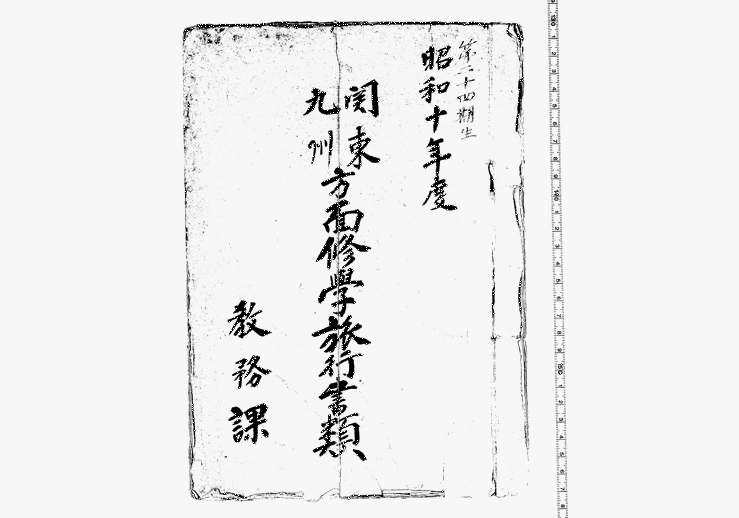 第二十四期生
昭和十年度
関東
九州
方面修學旅行書類
教務課